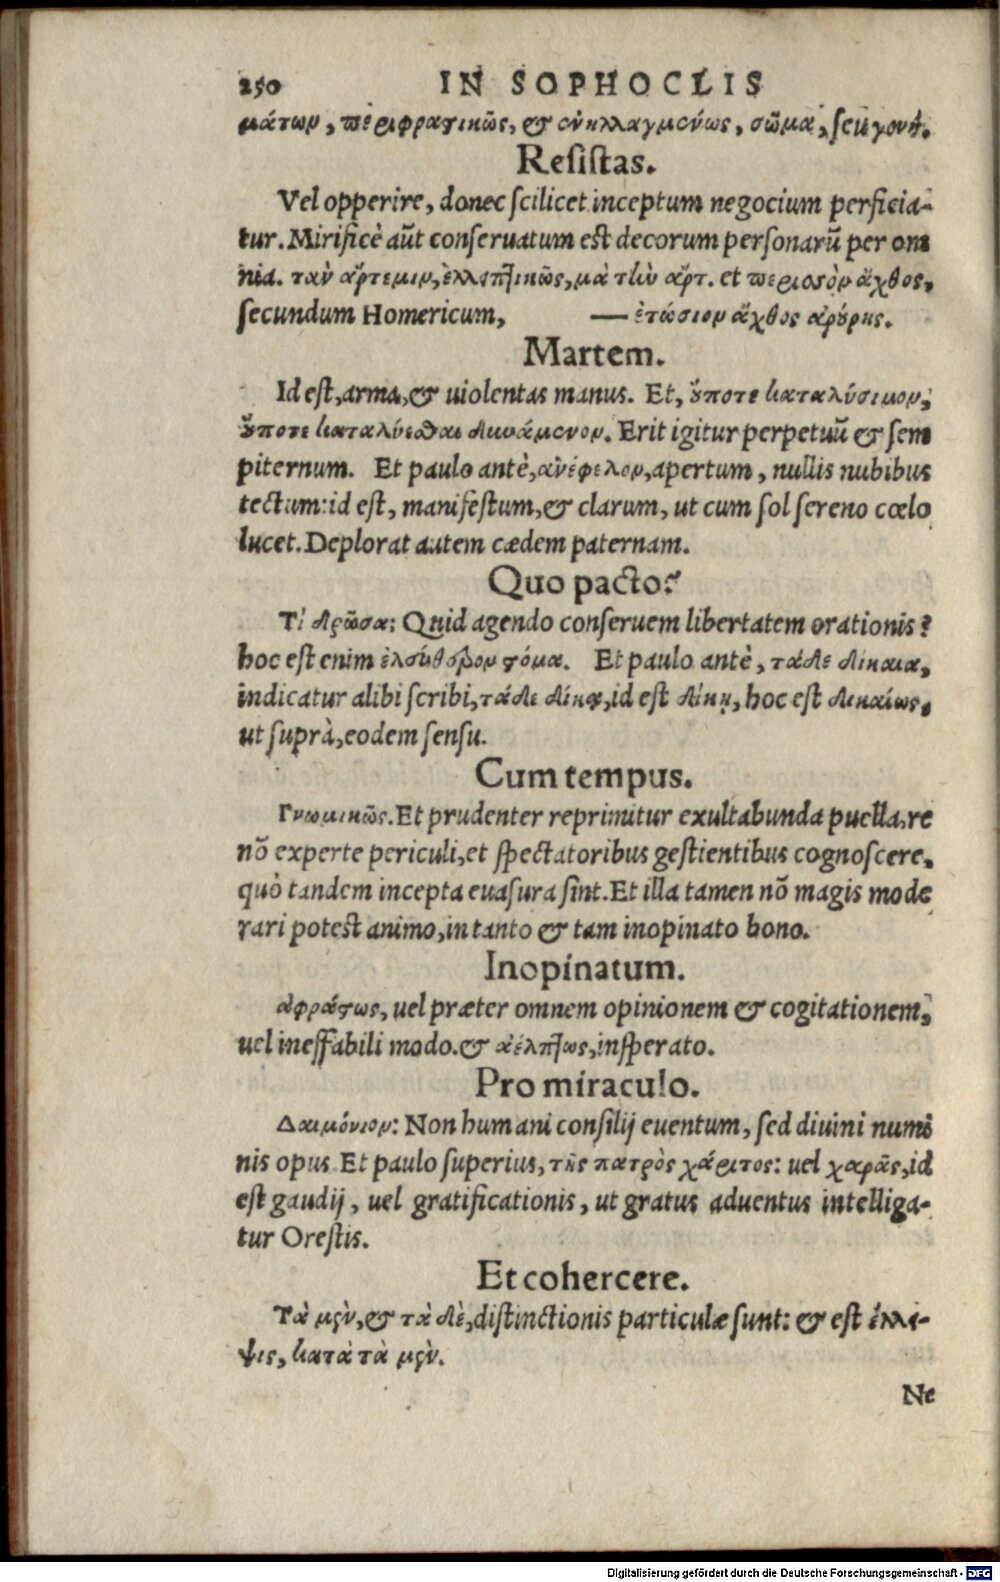 250 IN SOPHOCLIS
μάτων, περιφραστικῶς, & ἐνηλλαγμένως, σῶμα, seu γονή.
Resistas.
Vel opperire, donec scilicet inceptum negocium perficia-
tur. Mirificè aūt conseruatum est decorum personarū per om
nia. τὰν ἄρτεμιν, ἐλλειπτικῶς, μὰ τὴν ἄρτ. et περισσὸν ἄχθος,
secundum Homericum, — ἐτώσιον ἄχθος ἀρούρης.
Martem.
Id est, arma, & uiolentas manus. Et, οὔποτε καταλύσιμον,
οὔποτε καταλύεσθαι δυνάμενον. Erit igitur perpetuū & sem
piternum. Et paulo antè, ἀνέφελον, apertum, nullis nubibus
tectum: id est, manifestum, & clarum, ut cum sol sereno cœlo
lucet. Deplorat autem cædem paternam.
Quo pacto?
Τί δρῶσα: Quid agendo conseruem libertatem orationis?
hoc est enim ἐλεύθερον στόμα. Et paulo antè, τάδε δίκαια,
indicatur alibi scribi, τάδε δίκᾳ, id est δίκῃ, hoc est δικαίως,
ut suprà, eodem sensu.
Cum tempus.
Γνωμικῶς. Et prudenter reprimitur exultabunda puella, re
nō experte periculi, et spectatoribus gestientibus cognoscere,
quò tandem incepta euasura sint. Et illa tamen nō magis mode
rari potest animo, in tanto & tam inopinato bono.
Inopinatum.
ἀφράστως, uel præter omnem opinionem & cogitationem,
uel ineffabili modo. & ἀέλπτως, insperato.
Pro miraculo.
Δαιμόνιον: Non humani consilij euentum, sed diuini numi
nis opus. Et paulo superius, τῆς πατρὸς χάριτος: uel χαρᾶς, id
est gaudij, uel gratificationis, ut gratus aduentus intelliga-
tur Orestis.
Et cohercere.
Τὰ μὲν, & τὰ δὲ, distinctionis particulæ sunt: & est ἔλλει-
ψις, κατὰ τὰ μὲν.
Ne
Digitalisierung gefördert durch die Deutsche Forschungsgemeinschaft - DFG